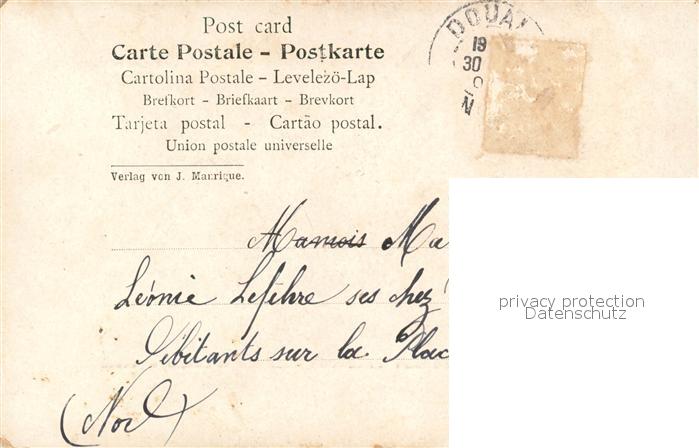 Post card
Carte Postale – Postkarte
Cartolina Postale – Levelező-Lap
Brefkort - Briefkaart - Brevkort
Tarjeta postal - Cartão postal.
Union postale universelle
Verlag von J. Manrique.
DOUAI
19
30
Ma
Léonie Lefebre ses chez
Débitants sur la Plac
(Nord)
privacy protection
Datenschutz